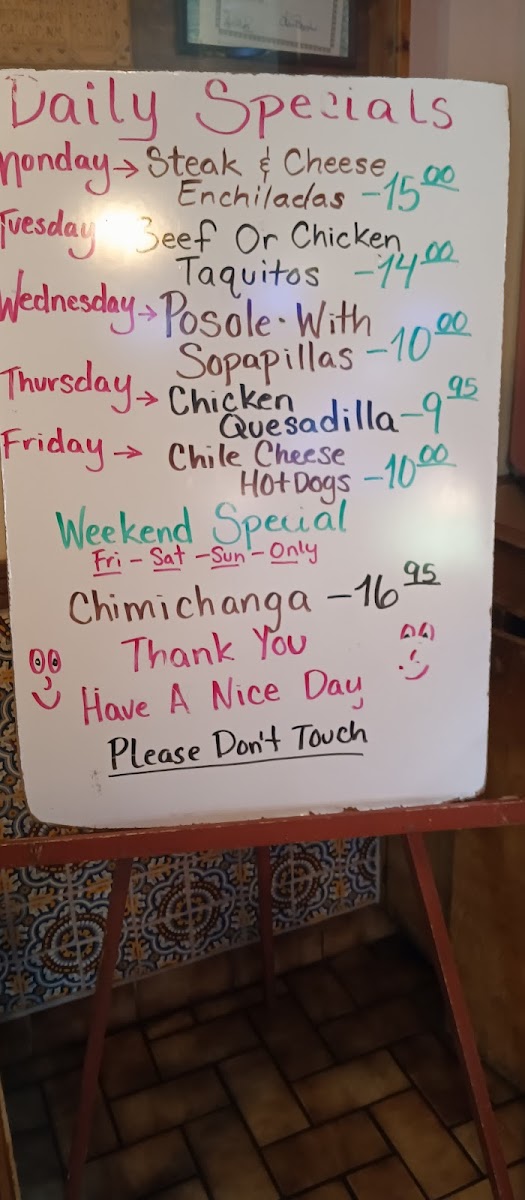 Daily Specials
Monday → Steak & Cheese
Enchiladas - 15.00
Tuesday Beef Or Chicken
Taquitos - 14.00
Wednesday → Posole. With
Sopapillas - 10.00
Thursday → Chicken
Quesadilla - 9.95
Friday → Chile Cheese
Hot Dogs - 10.00
Weekend Special
Fri - Sat - Sun - Only
Chimichanga - 16.95
Thank You
Have A Nice Day
Please Don't Touch